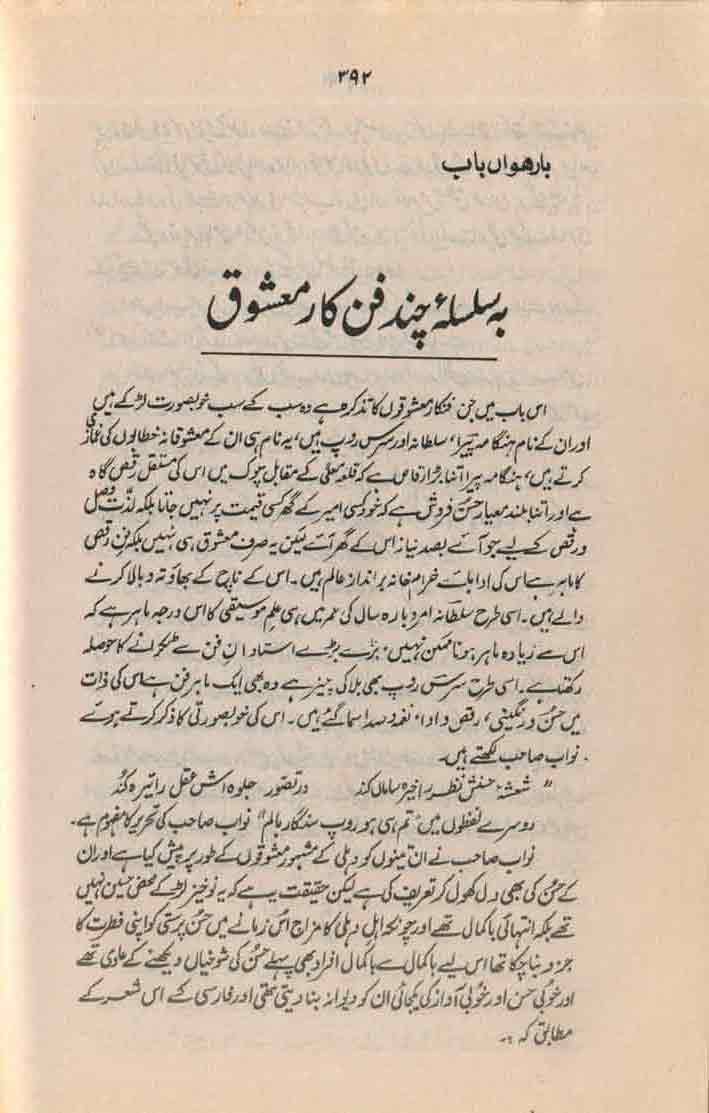 ۳۹۲
بارھواں باب
بہ سلسلۂ چند فن کار معشوق
اس باب میں جن فنکار معشوقوں کا تذکرہ ہے وہ سب کے سب خوبصورت لڑکے ہیں
اور ان کے نام ہنگامہ پیرا، سلطانہ اور سرس روپ ہیں، یہ نام ہی ان کے معشوقانہ خطابوں کی غمازی
کرتے ہیں، ہنگامہ پیرا اتنا بڑا رقاص ہے کہ قلعہ معلیٰ کے مقابل چوک میں اس کی مستقل رقص گاہ
ہے اور اتنا بلند معیار حسن فروش ہے کہ خود کسی امیر کے گھر کسی قیمت پر نہیں جاتا بلکہ لذت وصل
و رقص کے لیے جو آئے بصد نیاز اس کے گھر آئے لیکن یہ صرف معشوق ہی نہیں بلکہ فن رقص
کا ماہر ہے اس کی ادا ہائے خرام خانہ برانداز عالم ہیں۔ اس کے ناچ کے بھاؤ تہ و بالا کرنے
والے ہیں۔ اسی طرح سلطانہ امرد بارہ سال کی عمر میں ہی علم موسیقی کا اس درجہ ماہر ہے کہ
اس سے زیادہ ماہر ہونا ممکن نہیں، بڑے بڑے استادان فن سے ٹکرانے کا حوصلہ
رکھتا ہے۔ اسی طرح سرس روپ بھی بلا کی چیز ہے وہ بھی ایک ماہر فن ہے اس کی ذات
میں حسن و رنگینی، رقص و ادا، نغمہ و صدا سما گئے ہیں۔ اس کی خوبصورتی کا ذکر کرتے ہوئے
نواب صاحب لکھتے ہیں۔
"شعشۂ حسنش نظر را خیرہ ساماں کند در تصور جلوہ اش عقل را تیرہ کُند
دوسرے لفظوں میں "تم ہی ہو روپ سنگار بالم" نواب صاحب کی تحریر کا مفہوم ہے۔
نواب صاحب نے ان تینوں کو دہلی کے مشہور معشوقوں کے طور پر پیش کیا ہے اور ان
کے حسن کی بھی دل کھول کر تعریف کی ہے لیکن حقیقت یہ ہے کہ یہ نوخیز لڑکے محض حسین نہیں
تھے بلکہ انتہائی باکمال تھے اور چونکہ اہل دہلی کا مزاج اس زمانے میں حسن پرستی کو اپنی فطرت کا
جزو بنا چکا تھا اس لیے باکمال سے باکمال افراد بھی پہلے حسن کی شوخیاں دیکھنے کے عادی تھے
اور خوبئ حسن اور خوبئ آواز کی یکجائی ان کو دیوانہ بنا دیتی تھی اور فارسی کے اس شعر کے
مطابق کہ :۔